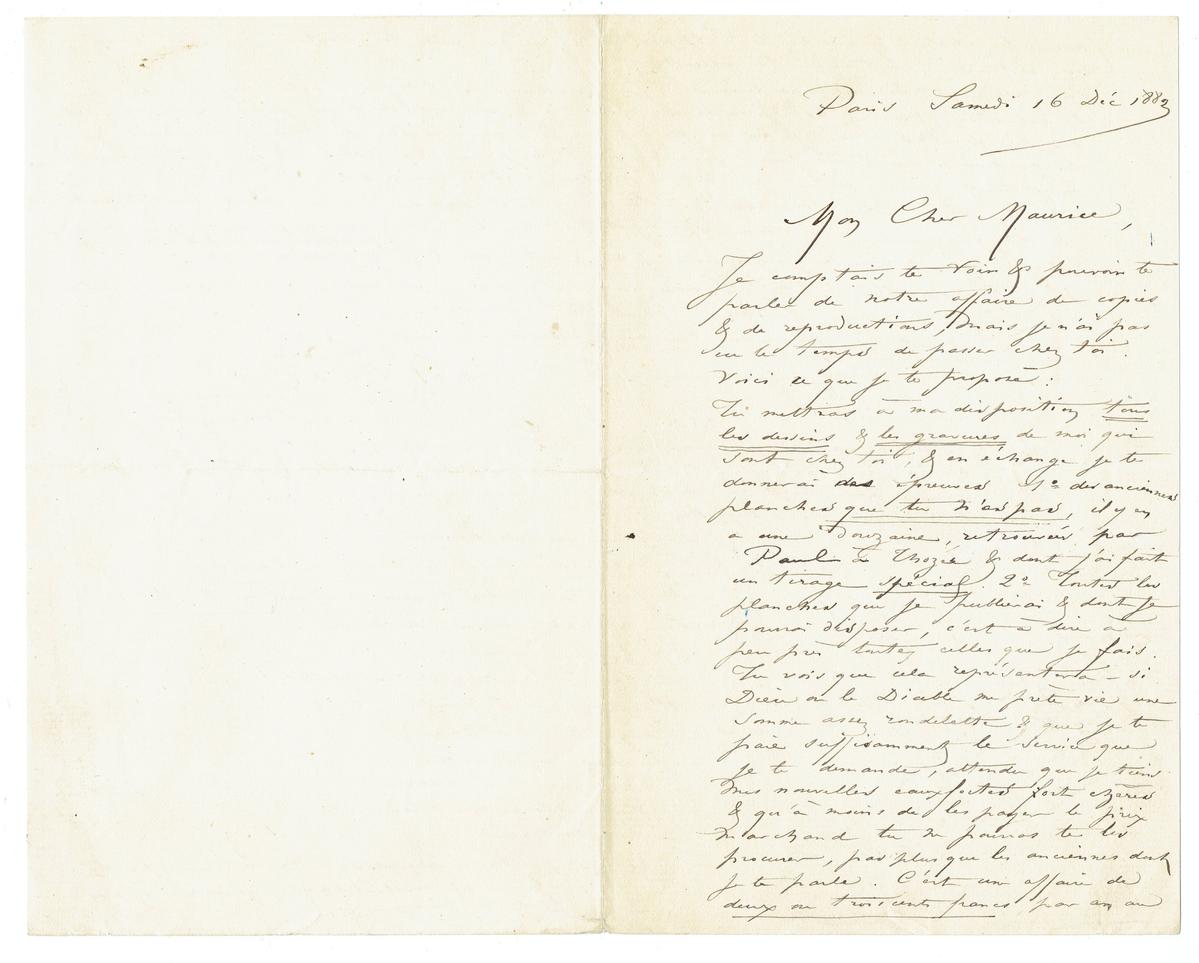 Paris Samedi 16 Déc 1882
Mon Cher Maurice,
Je comptais te voir & pouvoir te
parler de notre affaire de copies
& de reproductions, mais je n'ai pas
eu le temps de passer chez toi.
Voici ce que je te propose :
Tu mettras à ma disposition tous
les dessins & les gravures de moi qui
sont chez toi, & en échange je te
donnerai des épreuves 1º des anciennes
planches que tu n'as pas, il y en
a une douzaine, retrouvées par
Paul à Thozée & dont j'ai fait
un tirage spécial. 2º Toutes les
planches que je publierai & dont je
pourrai disposer, c'est à dire à
peu près toutes celles que je fais.
Tu vois que cela représentera – si
Dieu ou le Diable me prête vie une
somme assez rondelette & que je te
paie suffisamment le service que
je te demande, attendu que je tiens
mes nouvelles eauxfortes fort chères
& qu'à moins de les payer le prix
marchand tu ne pourras te les
procurer, pas plus que les anciennes dont
je te parle. C'est une affaire de
deux ou trois cents francs par an au